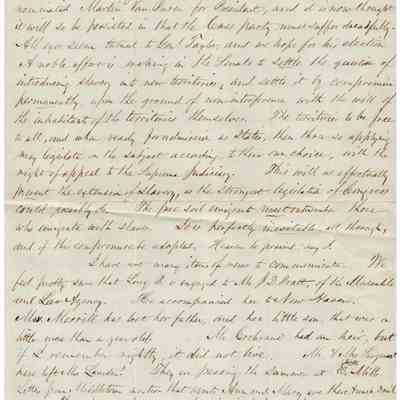 nominated Martin Van Buren for President, and it is now thought
it will so be persisted in that the Cass party must suffer dreadfully.
All eyes seem turned to Genl Taylor, and we hope for his election
A noble effort is making in the Senate to settle the question of
introducing slavery into new territories, and settle it by compromise
permanently, upon the ground of non-interference with the will of
the inhabitants of the territories themselves. The territories to be free
to all, and when ready for admission as States, then those so applying
may legislate on the subject according to their own choice, with the
right of appeal to the Supreme Judiciary. This will as effectually
prevent the extension of Slavery, as the strongest legislation of Congress
could possibly do. The free soil emigrant must outnumber those
who emigrate with slaves. It is perfectly inevitable all through,
and if the compromise be adopted, Heaven be praised, say I.
I have not many items of news to communicate. We
feel pretty sure that Long is engaged to Mr J. D. Pratt, of the
and Law Agency. He accompanied her to New Haven.
Mrs Merrill has lost her father, and her little son, that was a
little more than a year old. Mr Cochrane had an heir, but
if I remember rightly, it did not live. Mr & Mrs
have left the They are passing the Summer at
Letter from Middletown mention that Aunt Ann and Mary are there